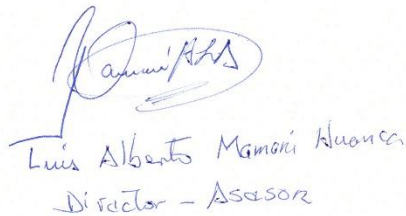 Luis Alberto Mamani Huanca
Director - Asesor